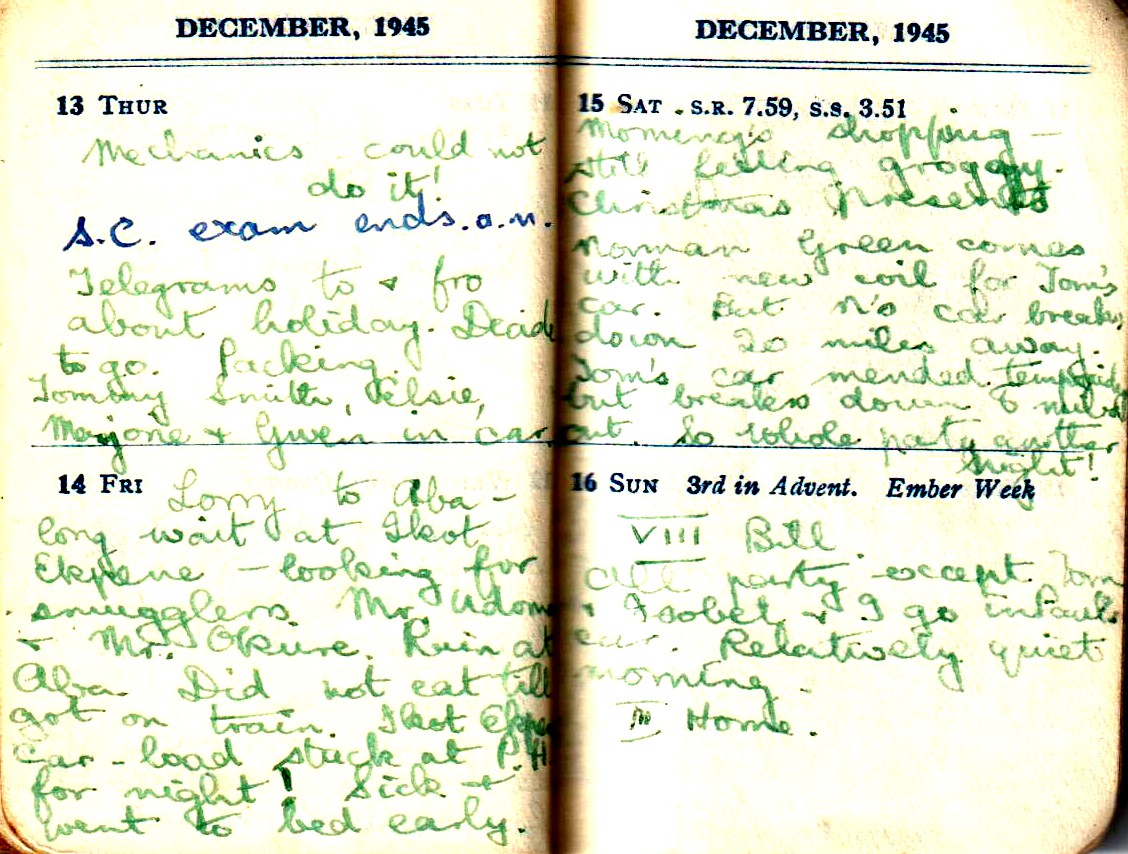 DECEMBER, 1945
13 THUR
Mechanics could not
do it!
S.C. exam ends a.m.
Telegrams to & fro
about holiday. Decide
to go. Packing.
Tommy Smith, Elsie,
Marjorie & Gwen in car
14 FRI
Lorry to Aba -
long wait at Ikot
Ekpene - looking for
smugglers. Mr. Udom
& Mr. Okure. Rain at
Aba. Did not eat till
got on train. Ikot Ekpene
Car-load stuck at P.H.
for night! Sick &
went to bed early.
DECEMBER, 1945
15 SAT. S.R. 7.59, S.S. 3.51
shopping -
still feeling groggy.
Christmas presents
Norman Green comes
with new coil for Tom's
car. But N's car breaks
down 20 miles away.
Tom's car mended
but breaks down 6 miles
out. So whole party another
night!
16 SUN 3rd in Advent. Ember Week
VIII Bill
All party except Tom
& Isobel & I go in Paul's
car. Relatively quiet
morning.
Home.